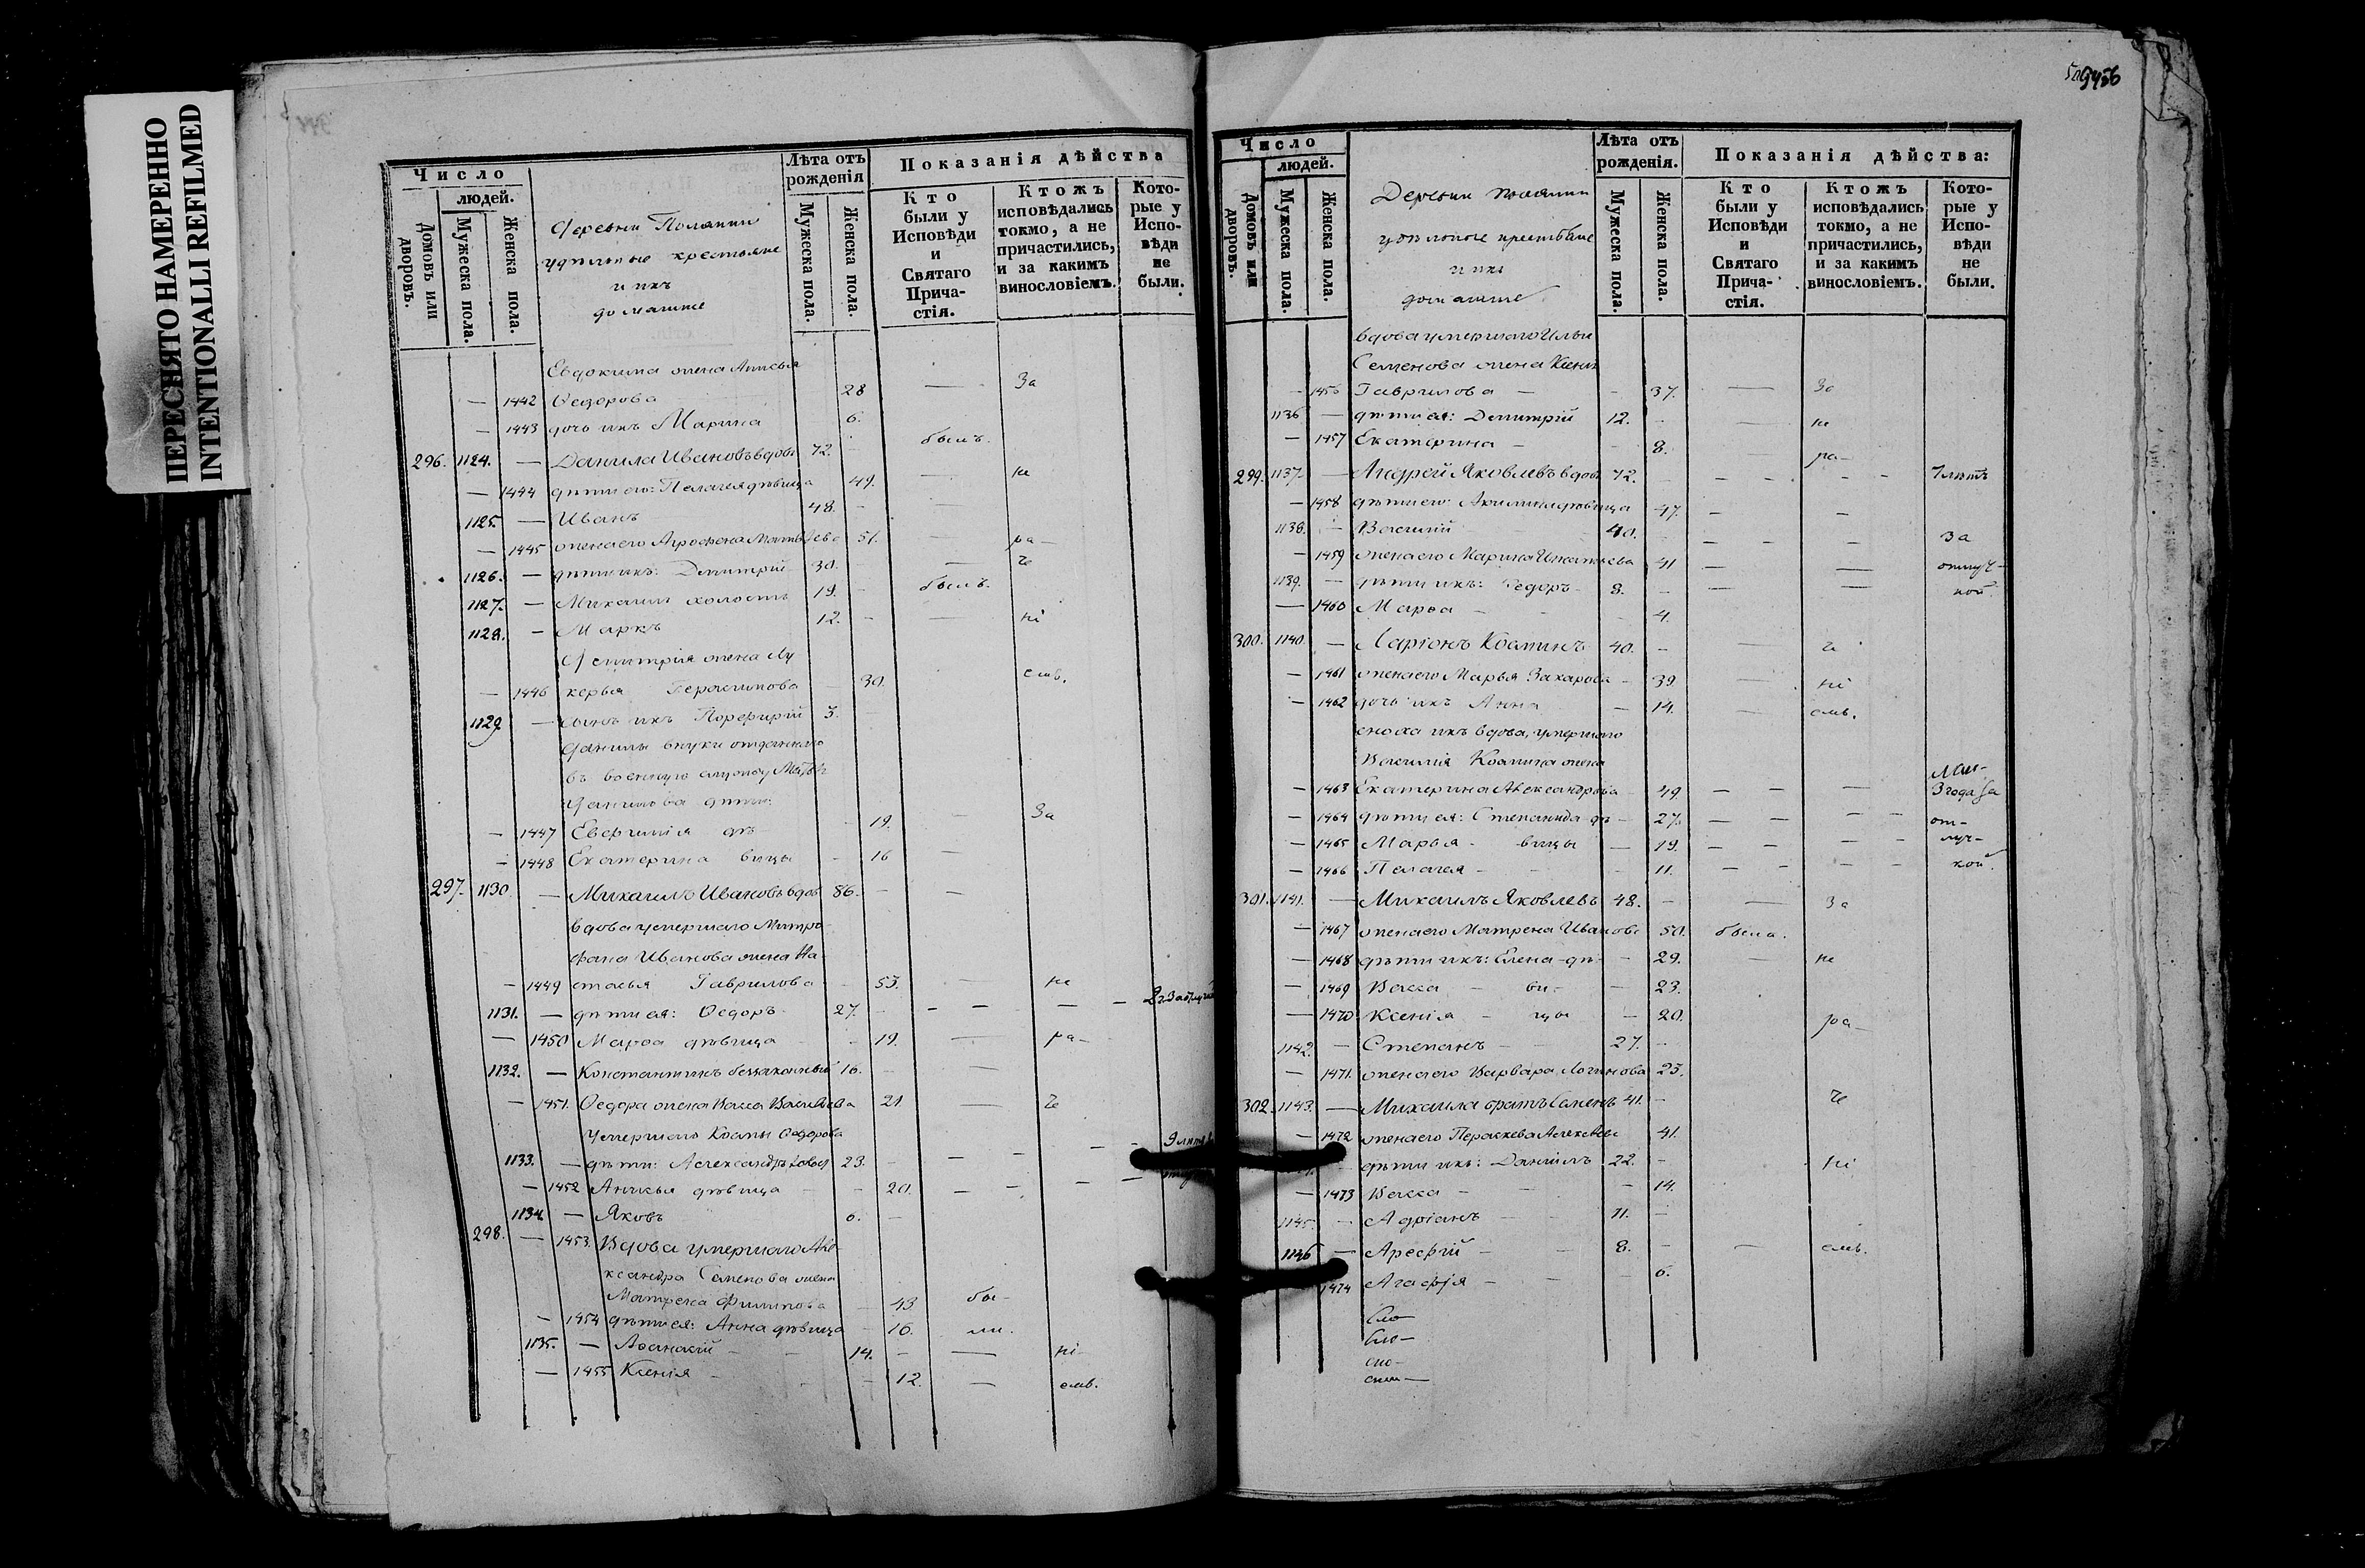 ПЕРЕСНЯТО НАМЕРЕННО
INTENTIONALLI REFILMED
Число
людей.
Домовъ или дворовъ.
Мужеска пола.
Женска пола.
Деревни Поляны
удѣльные крестьяне
и ихъ
домашніе
Лѣта отъ рожденія
Мужеска пола.
Женска пола.
Показанія дѣйства
Кто были у Исповѣди и Святаго Причастія.
Ктожъ исповѣдались токмо, а не причастились, и за какимъ винословіемъ.
Которые у Исповѣди не были.
Евдокима жена Анисья
— 1442 Ѳедорова 28 — За
— 1443 дочь ихъ Марина 6.
296. 1124. — Данила Ивановъ вдовъ 72. - былъ.
— 1444 дѣти его: Пелагея дѣвица 49. — не
1125. — Иванъ 48. - —
— 1445 жена его Агрофена Матвѣева 51. — ра-
1126. — дѣти ихъ: Димитрій 30. — че
1127. — Михаилъ холостъ 19. - былъ.
1128. — Маркъ 12. - — ні
Димитрія жена Лу
— 1446 керья Герасимова 30. емъ.
1129 — сынъ ихъ Порфирій 3.
Данилы внуки отданнаго
въ военную службу Матвѣя
Данилова дѣти:
— 1447 Евфимія дѣ - 19. — За
— 1448 Екатерина вицы - 16 —
297. 1130 — Михаилъ Ивановъ вдов 86. - —
вдова умершаго Митро-
фана Иванова жена На-
— 1449 стасья Гаврилова - 53. — не
1131. — дѣти ея: Ѳедоръ 27. - - - - -
— 1450 Марѳа дѣвица - 19. — ра-
1132. — Константинъ беззаконный 16. - —
— 1451. Ѳедора жена Васса Васильева 21 — че
Умершаго Козмы Ѳедорова
1133. — дѣти: Александръ 23. - - - - -
— 1452 Анисья дѣвица - 20. - - - -
1134 — Яковъ 6. -
298. — 1453. Вдова умершаго Але-
ксандра Семенова жена
Матрена Филипова - 43 бы-
— 1454 дѣти ея: Анна дѣвица - 16. ли.
1135. — Аѳанасій - 14. - — ні-
— 1455 Ксенія - - 12. — емъ.
Число
людей.
Домовъ или дворовъ.
Мужеска пола.
Женска пола.
Деревни Поляны
удѣльные крестьяне
и ихъ
домашніе
Лѣта отъ рожденія.
Мужеска пола.
Женска пола.
Показанія дѣйства:
Кто были у Исповѣди и Святаго Причастія.
Ктожъ исповѣдались токмо, а не причастились, и за какимъ винословіемъ.
Которые у Исповѣди не были.
вдова умершаго Ильи
Семенова жена Ксенія
- 1456 Гаврилова — - 37. — За
1136 — дѣти ея: Димитрій 12. - — не
— 1457 Екатерина - - 8. — ра-
299. 1137. — Андрей Яковлевъ вдовъ 72. - - - - - 7 лѣтъ
— 1458 дѣти его: Акилина дѣвица 47. - -
1138. - Василій - 40. - - - - за
— 1459 жена его Марина Игнатьева 41 — — отлуч-
1139. — дѣти ихъ: Ѳедоръ - 8. - — — кой.
— 1460 Марѳа - - - 4.
300. 1140. — Ларіонъ Козминъ 40. - — че
— 1461 жена его Марья Захарова - 39. — ні
— 1462 дочь ихъ Анна — 14. — емъ.
сноха ихъ вдова, умершаго
Василія Козмина жена
— 1463 Екатерина Александрова - 49. - - — 3 года за
— 1464 дѣти ея: Степанида дѣ - 27. - - - - от-
— 1465 Марья - вицы — 19. - - - - луч-
— 1466 Пелагея - - - 11. - - - - кой.
301. 1141. — Михаилъ Яковлевъ 48. - — за
— 1467 жена его Матрена Иванова 50. была.
— 1468 дѣти ихъ: Елена - дѣ- - 29. — не
— 1469 Васса - ви- — 23.
— 1470 Ксенія - цы — 20. ра-
1142. — Степанъ - - 27. -
— 1471. жена его Варвара Логинова 25.
302. 1143. — Михаила братъ Семенъ 41. - че
- 1472 жена его Параскева Алексѣева 41.
- дѣти ихъ: Даніилъ 22. - ні
— 1473 Васса - - — 14.
1145. - Адріанъ - - 11. -
1146 — Арефій - - 8. - — емъ.
1474 Агафія - - - 6.